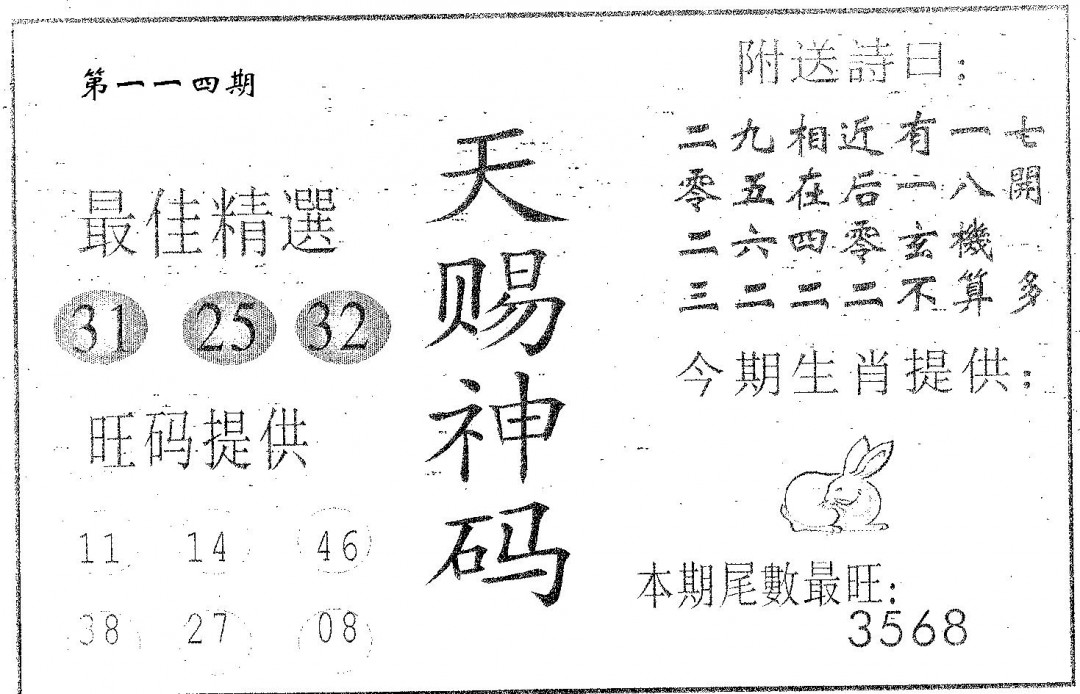 第一一四期
最佳精選
31 25 32
旺码提供
11 14 46
38 27 08
天赐神码
附送詩曰：
二九相近有一七
零五在后一八開
二六四零玄機
三二二二不算多
今期生肖提供：
本期尾數最旺：
3568